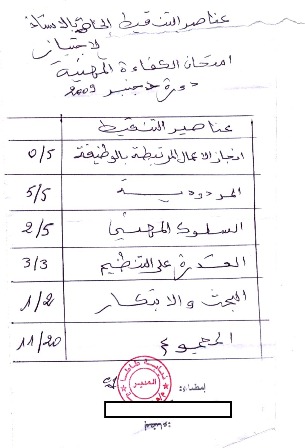 عناصر التنقيط الخاصة بالأستاذ
لاجتياز
امتحان الكفاءة المهنية
دورة دجنبر 2009
عناصر التنقيط
انجاز الاعمال المرتبطة بالوظيفة 0/5
المردودية 5/5
السلوك المهني 2/5
القدرة على التنظيم 3/3
البحث والابتكار 1/2
المجموع 11/20
المدير
إمضاء:
إمضاء: